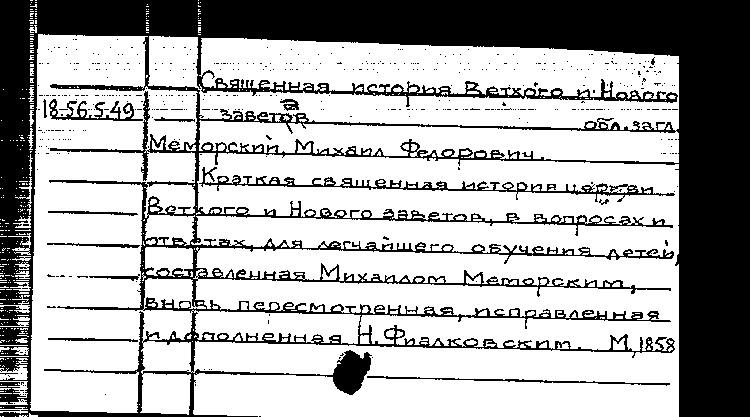 Священная история Ветхого и Нового
18.56.5.49 завета. обл. загл.
Меморский, Михаил Федорович.
Краткая священная история церкви
Ветхого и Нового заветов, в вопросах и
ответах, для легчайшего обучения детей,
составленная Михаилом Меморским,
вновь пересмотренная, исправленная
и дополненная Н. Фиалковским. М, 1858